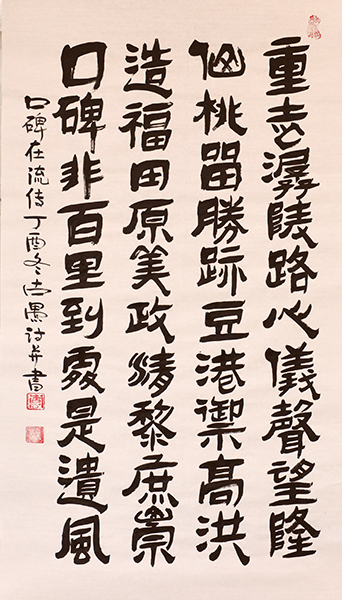 重走潺陵路心儀聲望隆
仙桃留勝跡豆港禦高洪
造福田原美政清黎庶崇
口碑非百里到處是遺風
口碑在流传丁酉冬愚诗并書